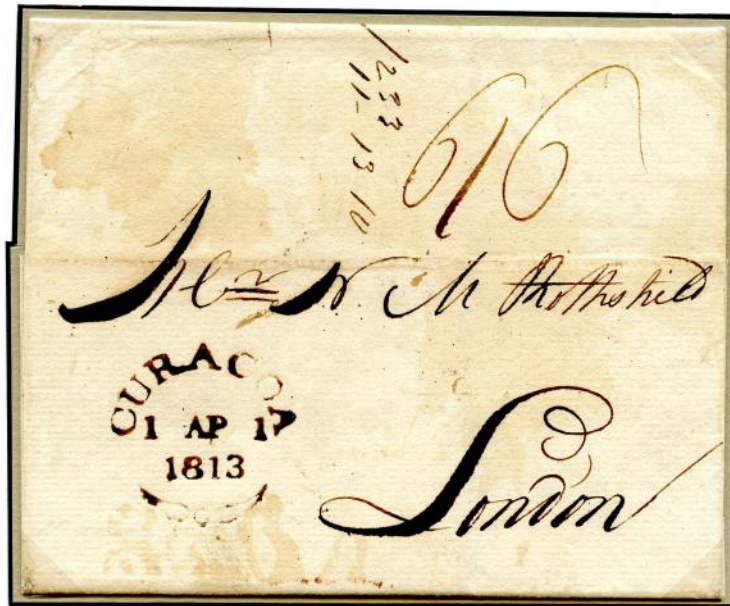 1233
11-13 10
6/6
Mr N M Rothshild
CURACOA
1 AP 1
1813
London